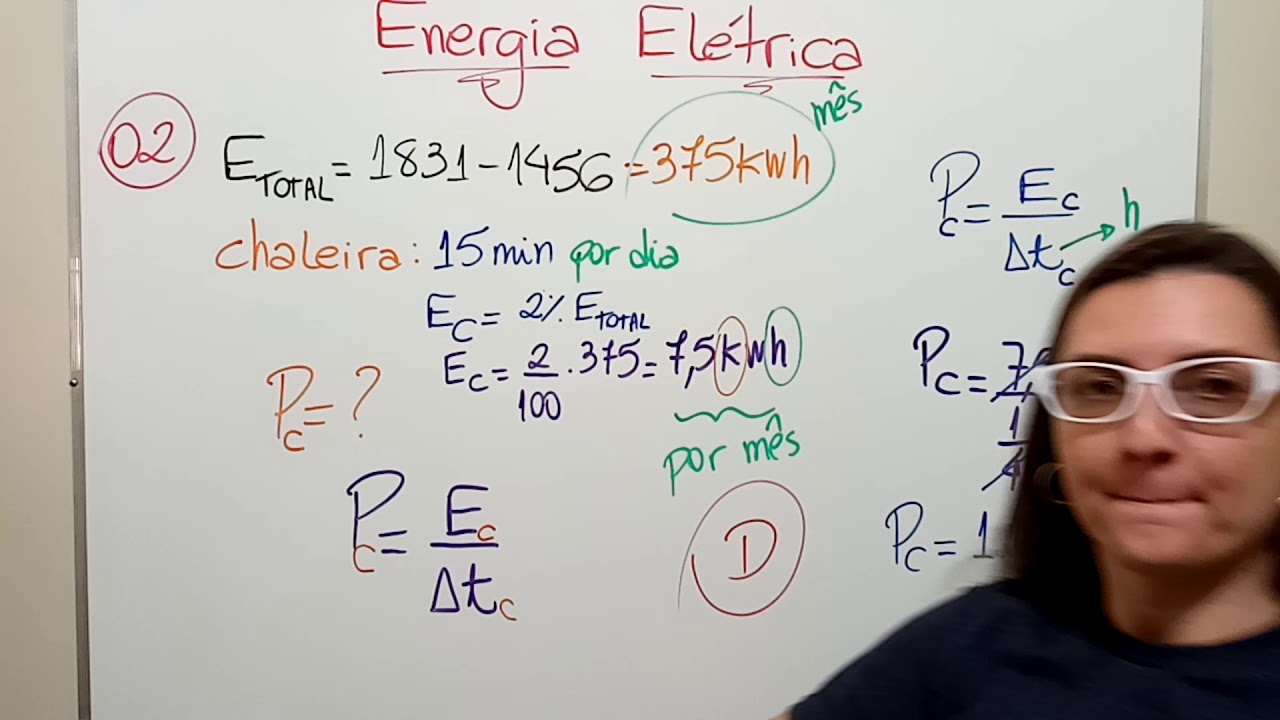 Energia Elétrica
02
E TOTAL = 1831 - 1456 = 375kwh
mês
chaleira: 15min por dia
EC = 2% E TOTAL
EC = 2/100 . 375 = 7,5kwh
por mês
PC = ?
PC = EC/ΔtC
D
PC = EC/ΔtC
h
PC = 7,
1
PC = 1